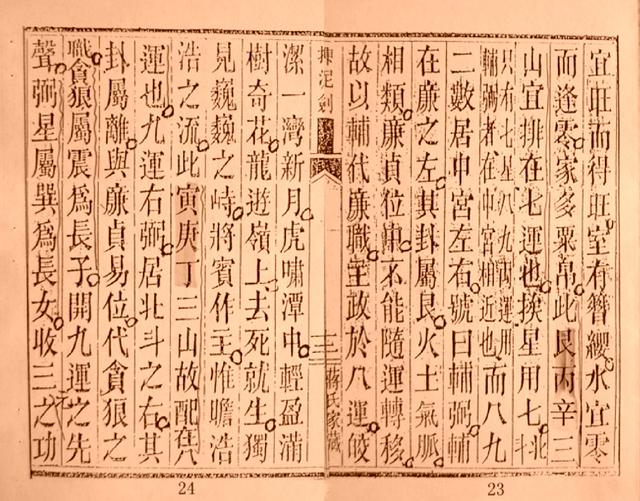 宜旺而得旺室有簪纓水宜零
而逢零家多粟帛此艮丙辛三
山宜排在七運也挨星用七北
只有七星八九兩運用
輔弼者在中宮相近也
而八九
二數居中宮左右號曰輔弼輔
在廉之左其卦屬艮火土氣脈
相類廉貞位中不能隨運轉移
故以輔代廉職主政於八運皎
23
揮泥劍
蔣氏家藏
潔一灣新月虎嘯潭中輕盈滿
樹奇花龍遊嶺上去死就生獨
見巍巍之峙將賓作主惟瞻浩
浩之流此寅庚丁三山故配在八
運也九運右弼居北斗之右其
卦屬離與廉貞易位代貪狼之
職貪狼屬震爲長子開九運之先
聲弼星屬巽爲長女收三元之功
24